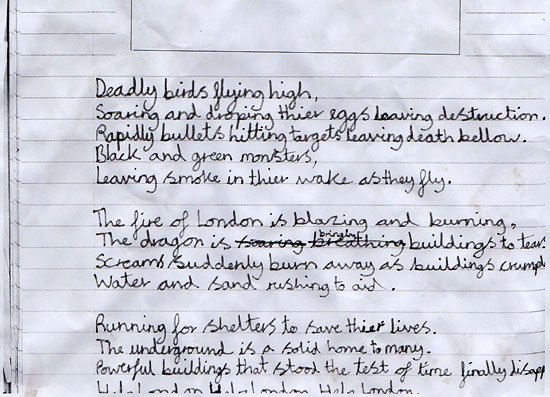 Deadly birds flying high,
Soaring and droping thier eggs leaving destruction.
Rapidly bullets hitting targets leaving death bellow.
Black and green monsters,
Leaving smoke in thier wake as they fly.
The fire of London is blazing and burning,
The dragon is soaring breathing bringing buildings to tears
Screams suddenly burn away as buildings crumpl
Water and sand rushing to aid.
Running for shelters to save thier lives.
The underground is a solid home to many.
Powerful buildings that stood the test of time finally disapp
Help London Help London Help London.